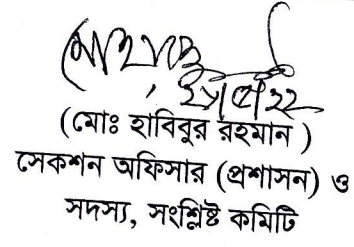 (মোঃ হাবিবুর রহমান )
সেকশন অফিসার (প্রশাসন) ও
সদস্য, সংশ্লিষ্ট কমিটি